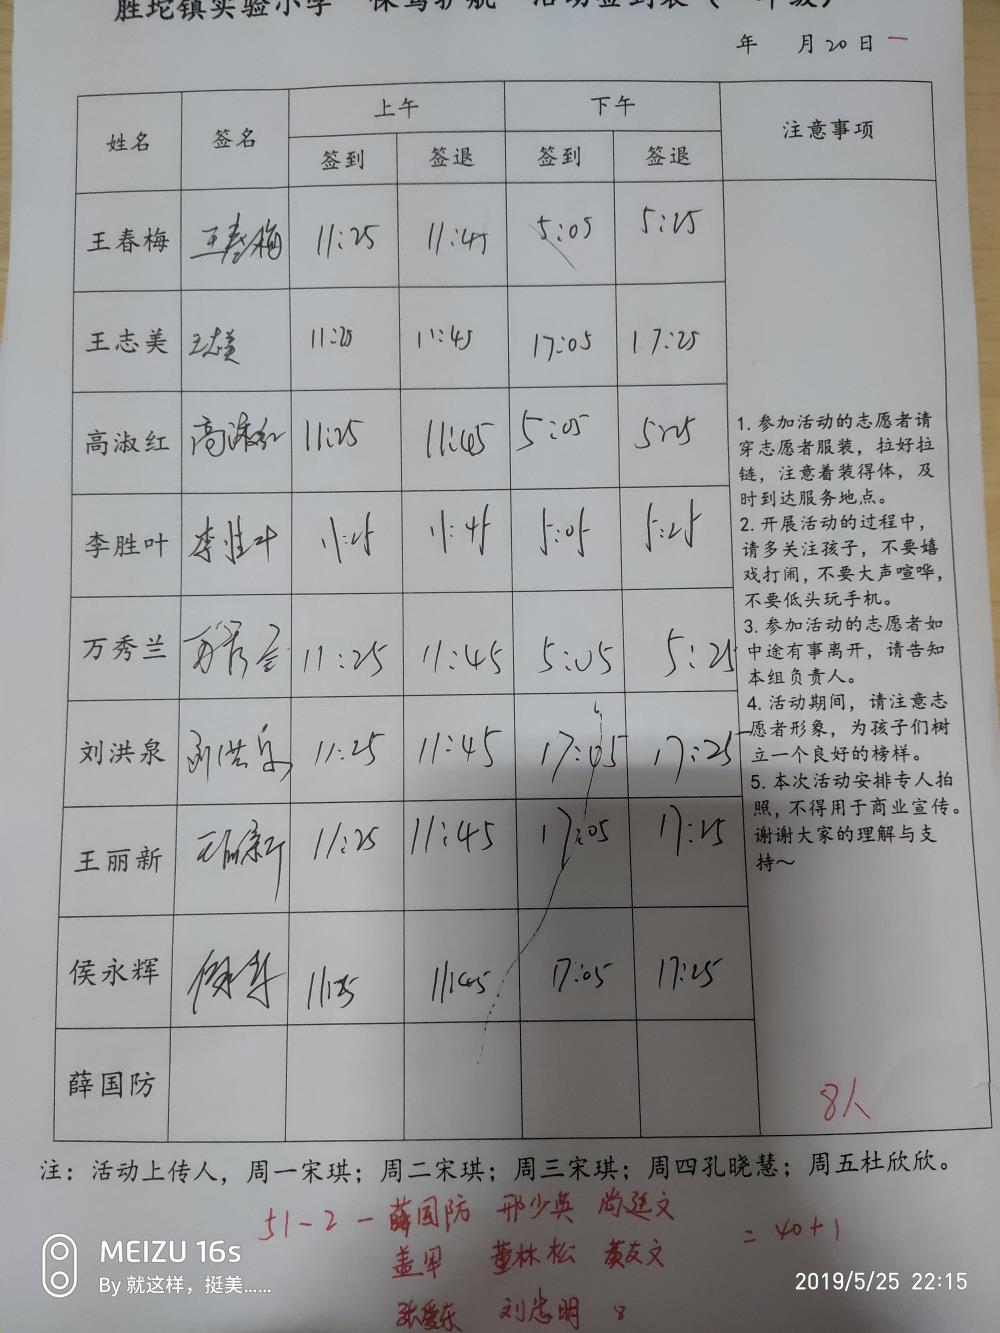 胜坨镇实验小学“保驾护航”活动签到表（一年级）
年 月 20 日 一
姓名 签名 上午 下午 注意事项
签到 签退 签到 签退
王春梅 王春梅 11:25 11:45 5:05 5:25
王志美 王志美 11:25 11:45 17:05 17:25
高淑红 高淑红 11:25 11:45 5:05 5:25
李胜叶 李胜叶 11:25 11:45 5:05 5:25
万秀兰 万秀兰 11:25 11:45 5:05 5:25
刘洪泉 刘洪泉 11:25 11:45 17:05 17:25
王丽新 王丽新 11:25 11:45 17:05 17:25
侯永辉 11:25 11:45 17:05 17:25
薛国防
1. 参加活动的志愿者请
穿志愿者服装，拉好拉
链，注意着装得体，及
时到达服务地点。
2. 开展活动的过程中，
请多关注孩子，不要嬉
戏打闹，不要大声喧哗，
不要低头玩手机。
3. 参加活动的志愿者如
中途有事离开，请告知
本组负责人。
4. 活动期间，请注意志
愿者形象，为孩子们树
立一个良好的榜样。
5. 本次活动安排专人拍
照，不得用于商业宣传。
谢谢大家的理解与支
持～
8人
注：活动上传人，周一宋琪；周二宋琪；周三宋琪；周四孔晓慧；周五杜欣欣。
51-2-薛国防 邢少英 尚廷文
盖军 董林松 黄友文 = 40+1
张爱东 刘忠明 8
MEIZU 16s
By 就这样，挺美......
2019/5/25 22:15